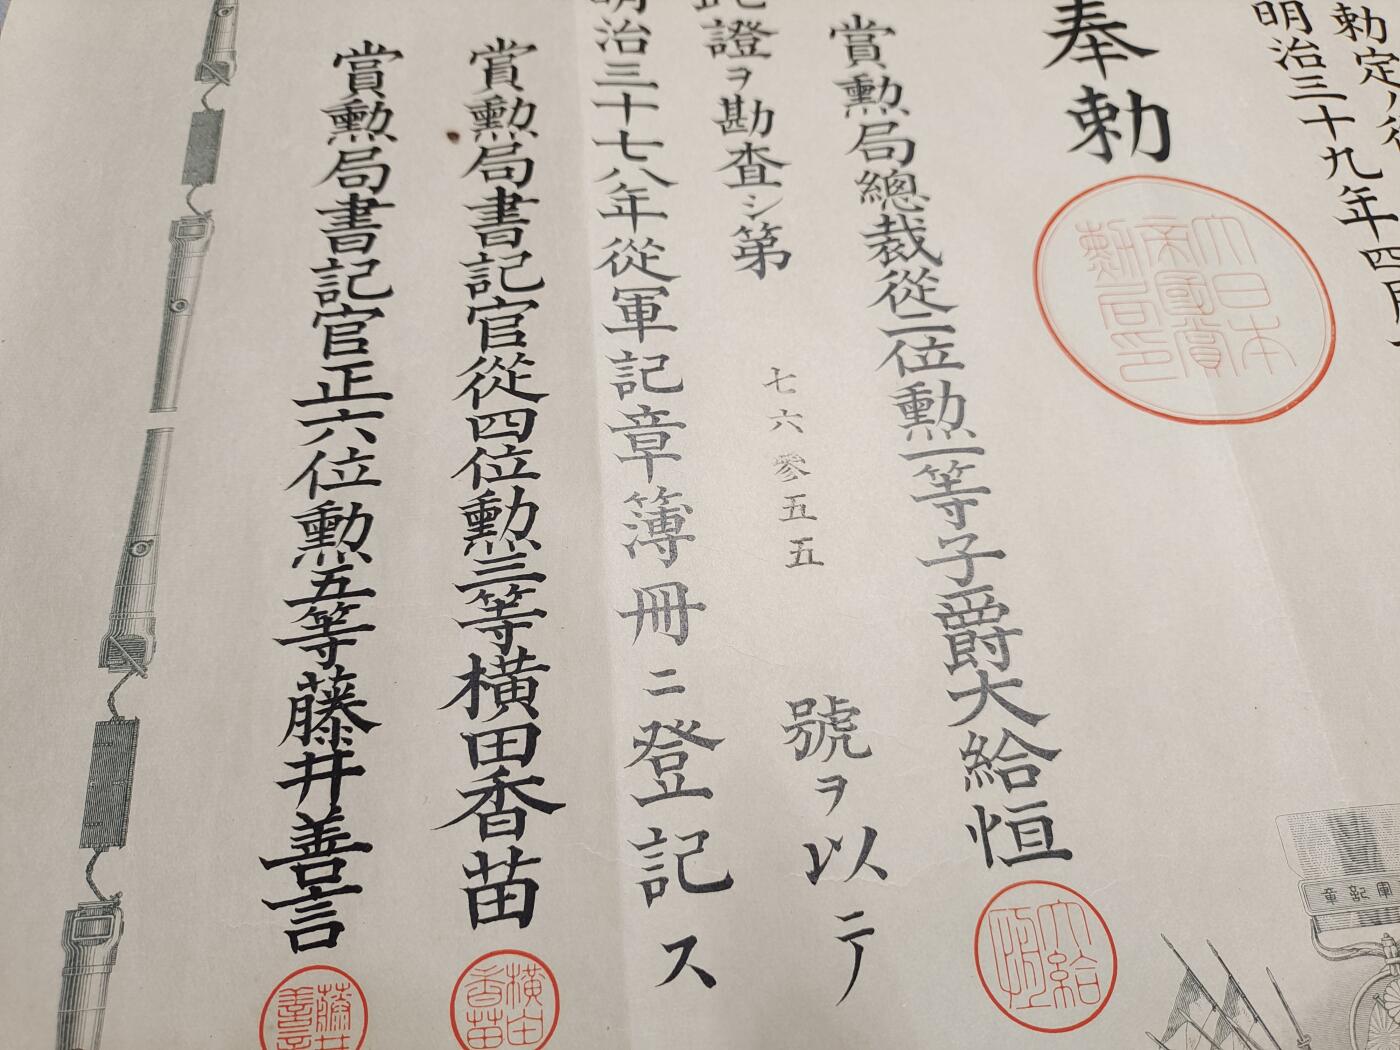 勅定ノ
明治三十九年四月
奉勅
大日本帝國賞勲局印
賞勲局總裁從二位勲一等子爵大給恒
大給恒
此證ヲ勘査シ第七六參五五號ヲ以テ
明治三十七八年從軍記章簿冊ニ登記ス
賞勲局書記官從四位勲三等横田香苗
横田香苗
賞勲局書記官正六位勲五等藤井善言
藤井善言
軍記章